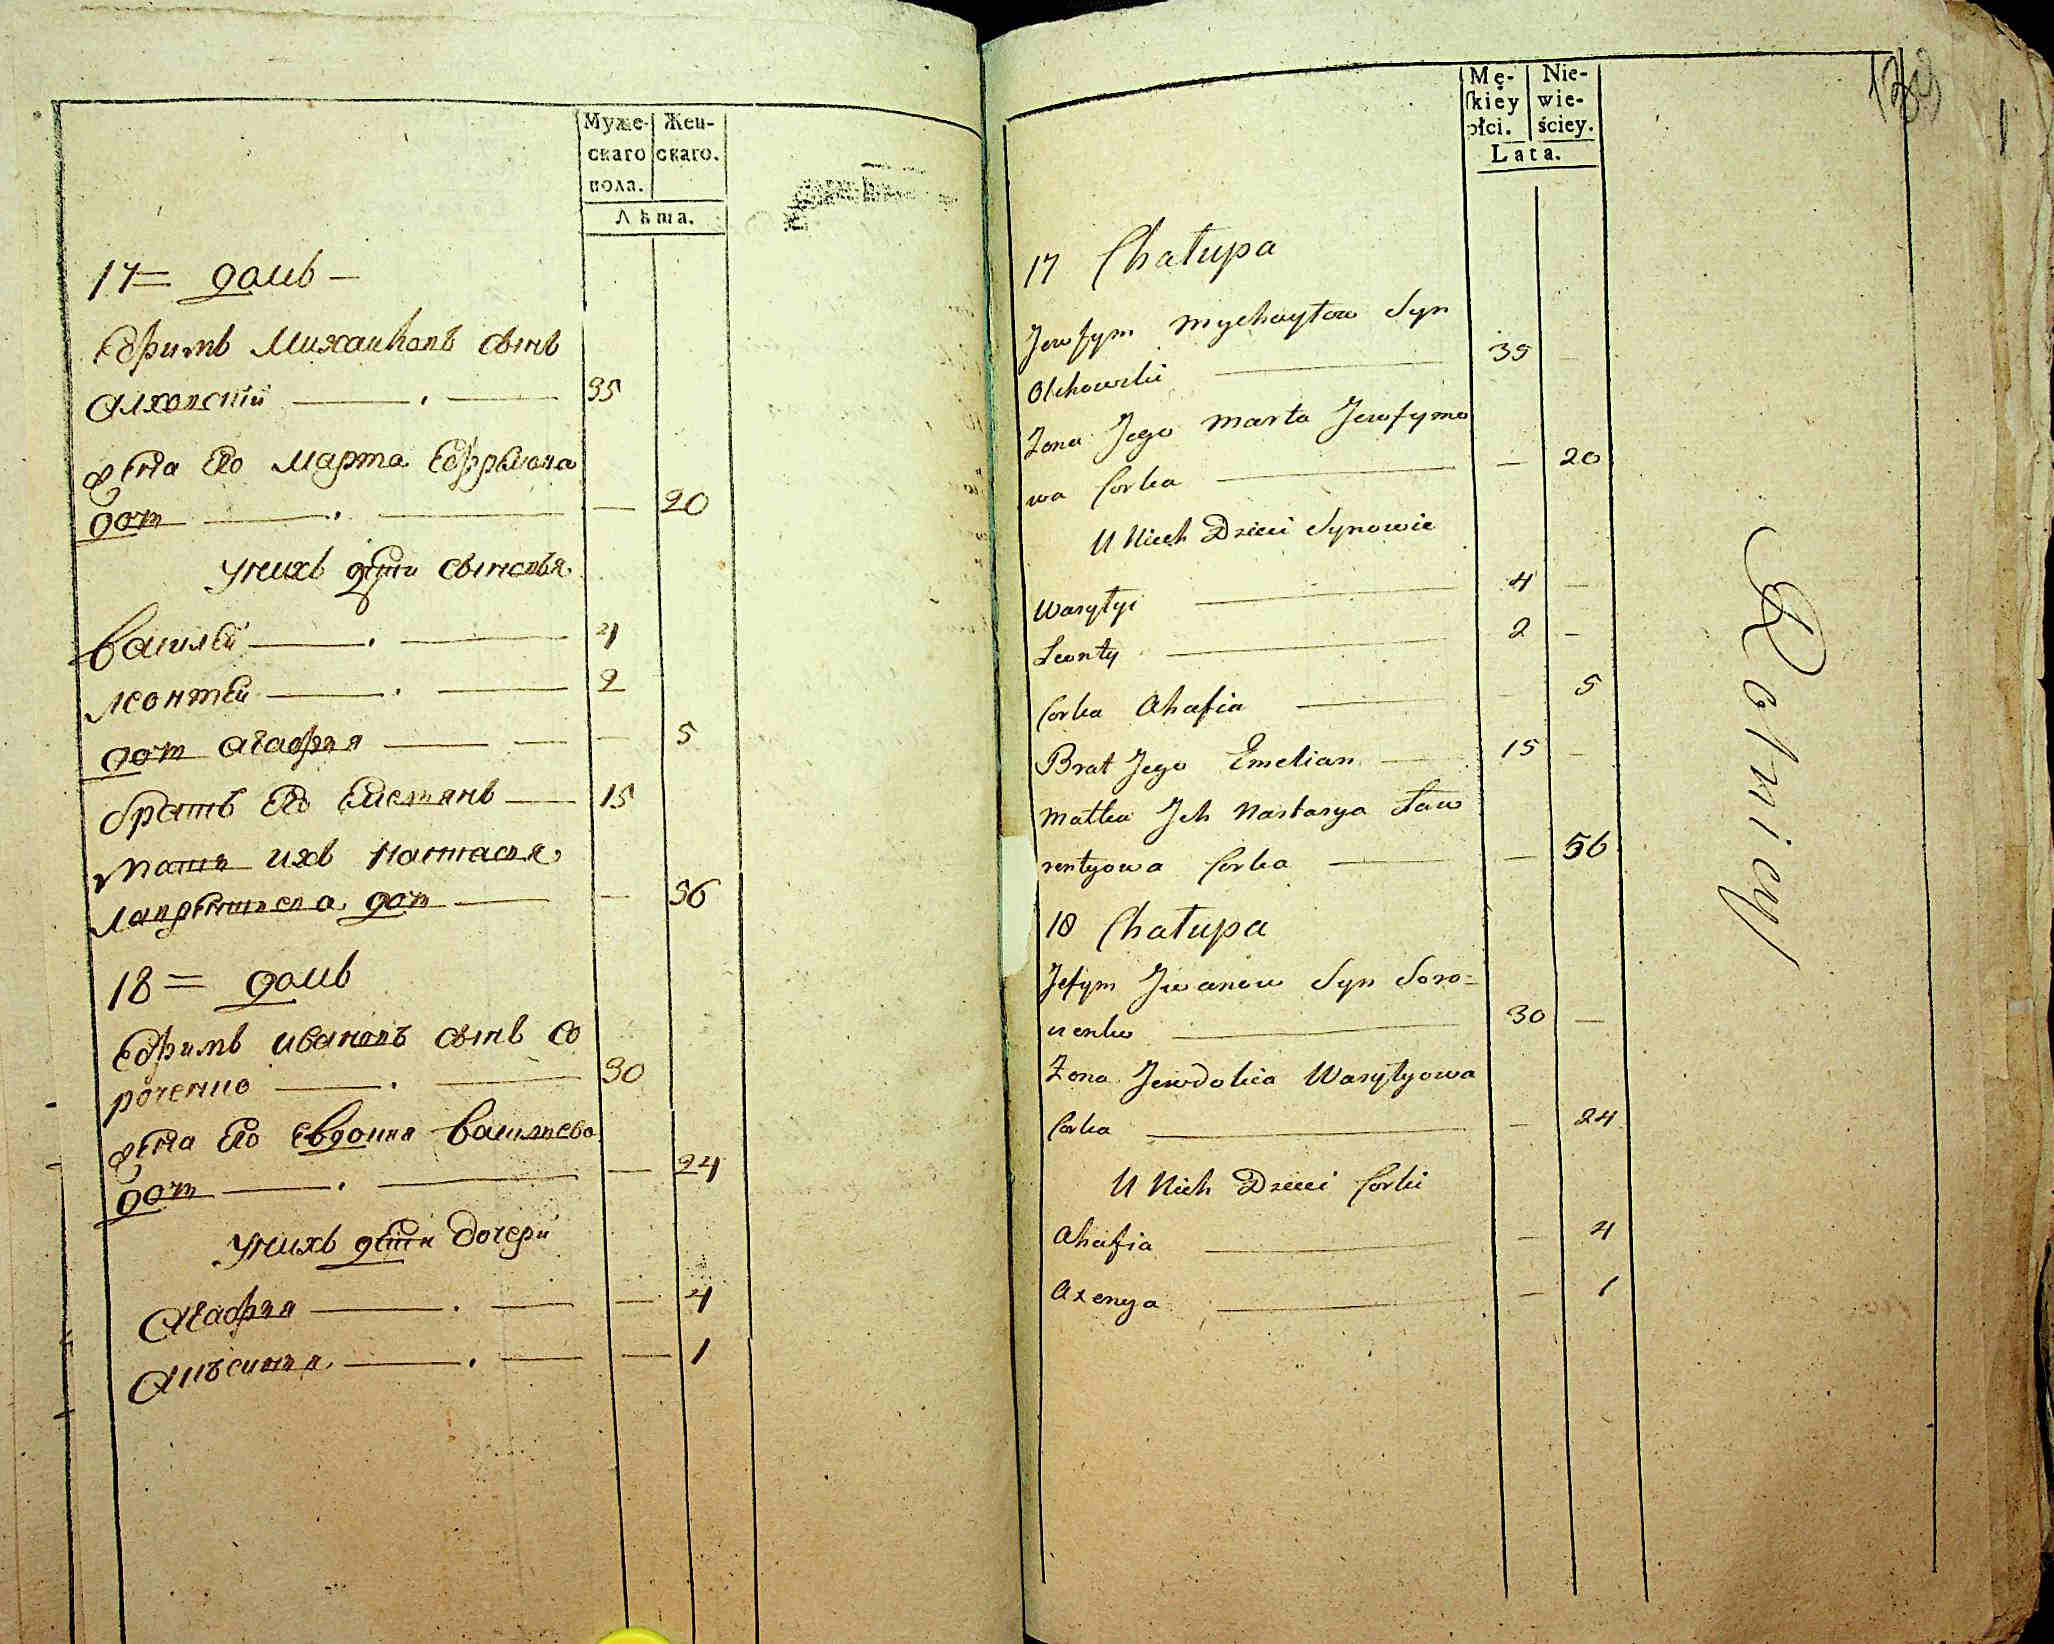 Муже- Жен-
скаго скаго.
пола.
Лѣта.
17= домъ
Ефимъ Михайловъ сынъ
Алховский 35
жена Его Марта Ефимова
доч 20
Унихъ дѣти сыновья
Василей 4
Леонтей 2
доч Агафия 5
братъ Его Емельянъ 15
мать ихъ Настасья
Лаврентьева доч 56
18= домъ
Ефимъ Ивановъ сынъ Со
роченко 30
жена Его Евдокия Васильева
доч 24
Унихъ дѣти дочери
Агафия 4
Аксинья 1
Mę- Nie-
skiey wie-
płci. ściey.
Lata.
17 Chałupa
Jewfym Mychayłow Syn
Olchowski 35
Zona Jego Marta Jewfymo
wa Corka 20
U Nich Dzieci Synowie
Wasyłyi 4
Leonty 2
Corka Ahafia 5
Brat Jego Emelian 15
Matka Jch Nastasya Ław
rentyowa Corka 56
18 Chałupa
Jefym Jwanow Syn Soro=
czenko 30
Zona Jewdokia Wasyłyowa
Corka 24
U Nich Dzieci Corki
Ahafia 4
Axenya 1
Rolnicy